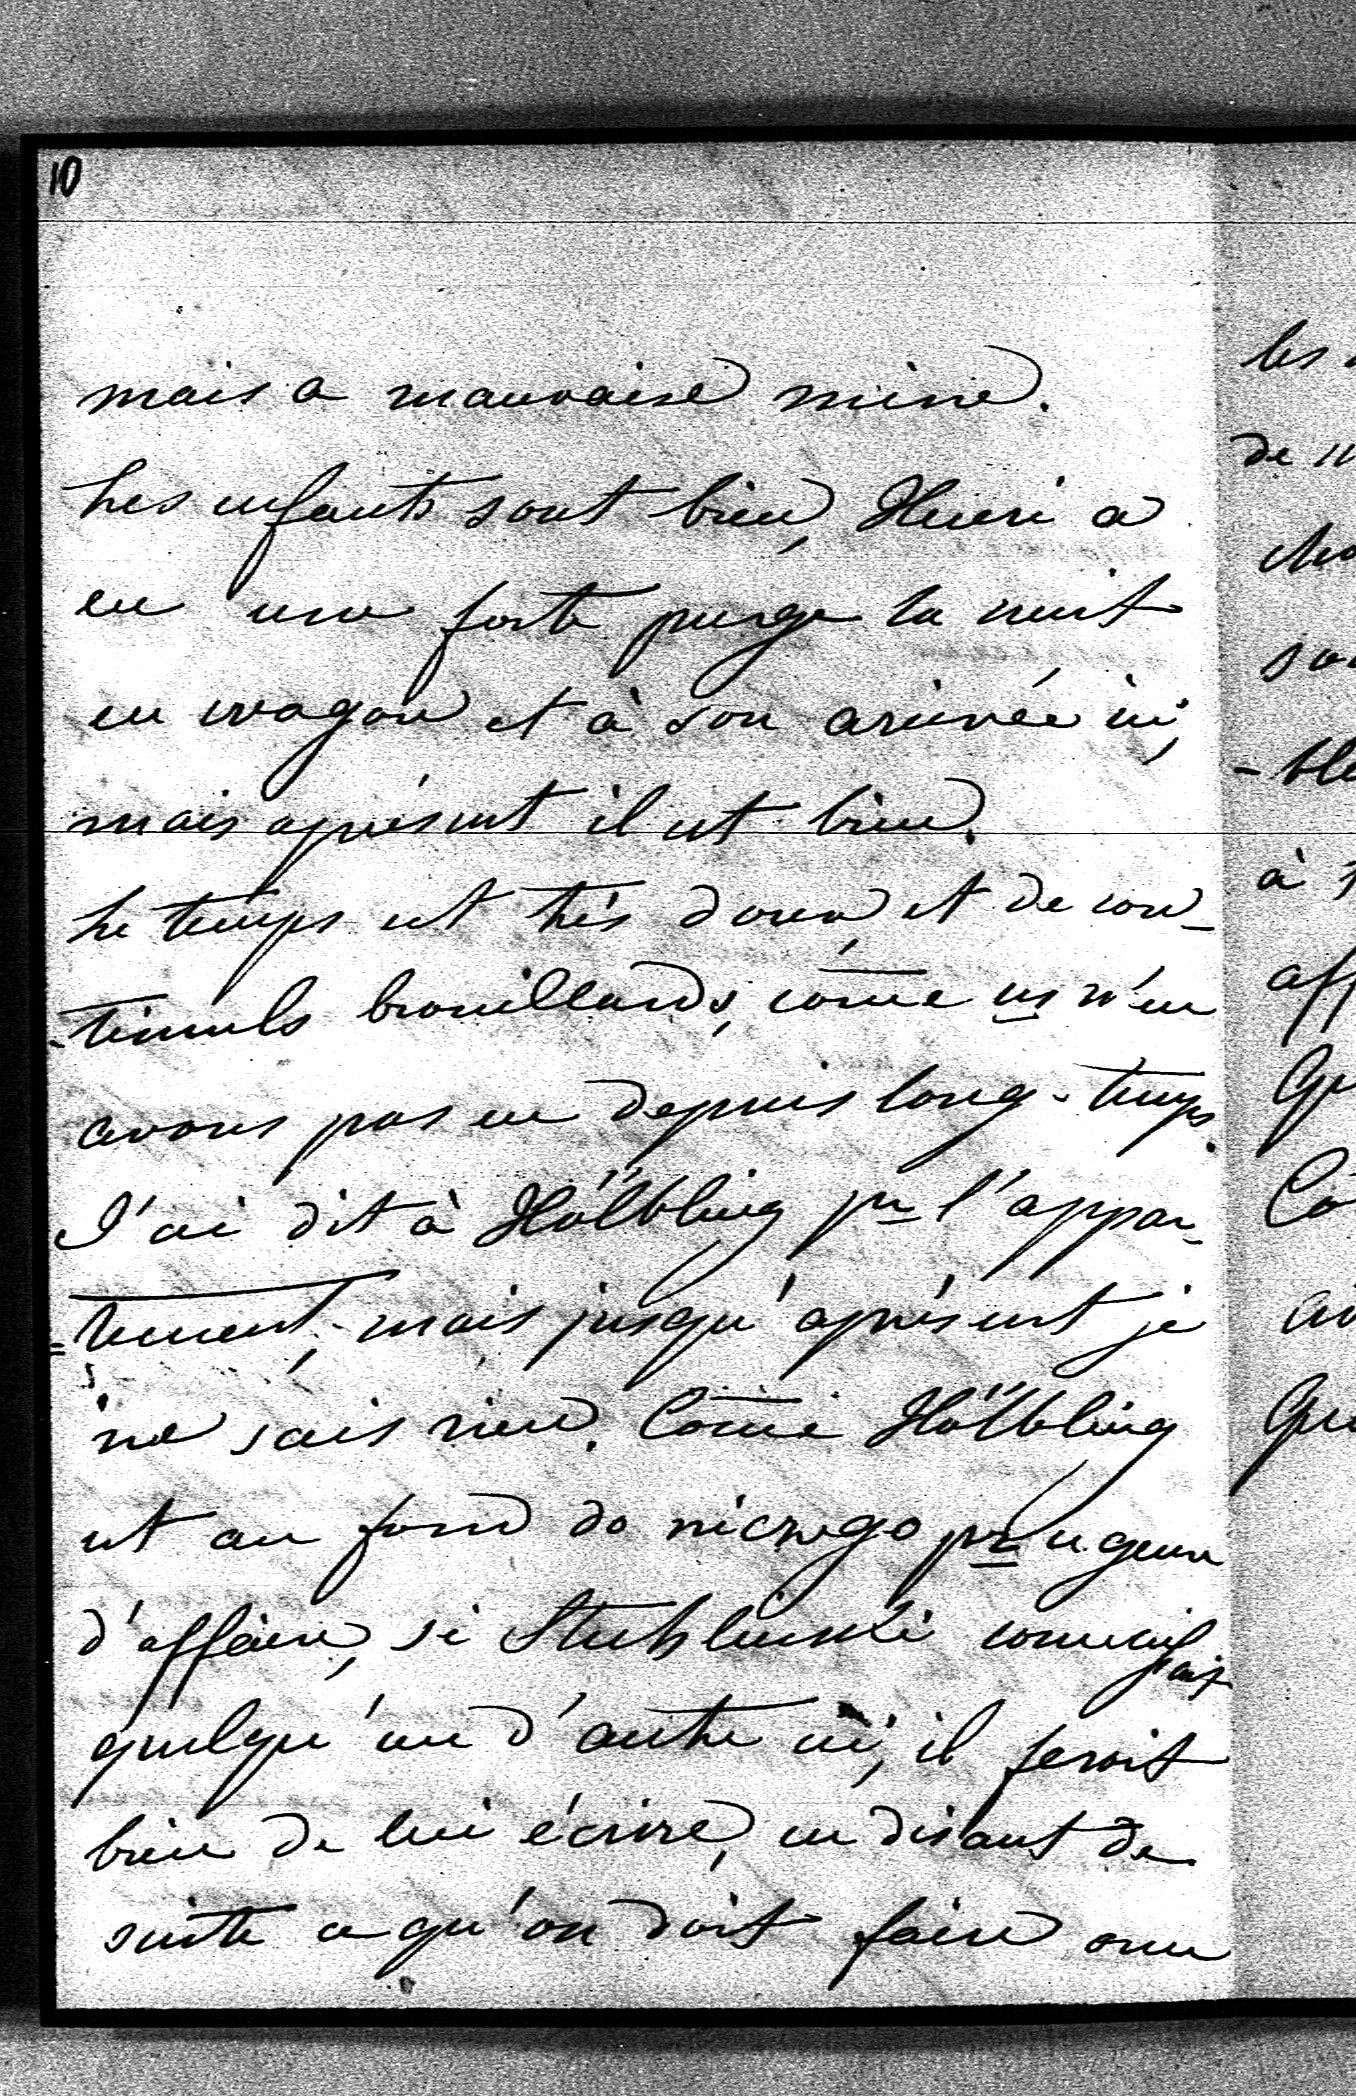 10
mais a mauvaise mine.
Les enfants sont bien, Henri a
eu une forte purge la nuit
en wagon et à son arrivée ici,
mais àprésent il est bien.
Le temps est très doux, et de con-
-tinuels brouillards, come ns n'en
avons pas eu depuis long-temps.
J'ai dit à Hölbling pr l'appar-
=tement, mais jusqu'àprésent je
ne sais rien. Come Hölbling
est au fond do niczego pr ce genre
d'affaire, si Stuhlinski connaissait
quelqu'un d'autre ici, il feroit
bien de lui écrire, en disant de
suite ce qu'on doit faire
les
de
à
aff